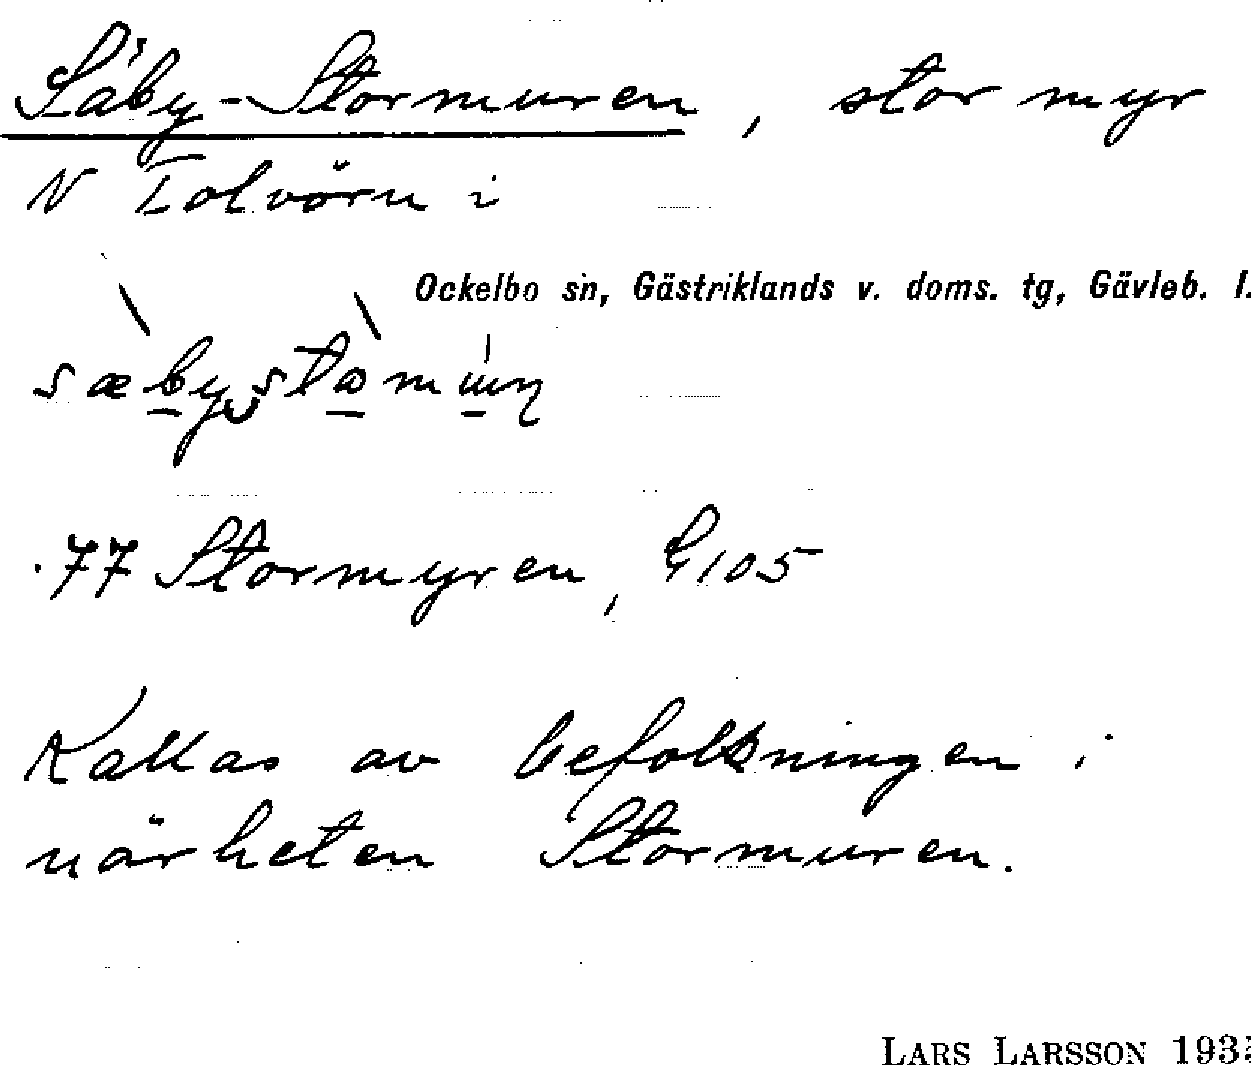 Säby-Stormuren, stor myr
N Tolvörn i
Ockelbo sn, Gästriklands v. doms. tg, Gävleb. l.
.77 Stormyren, G105
Kallas av befolkningen i
närheten Stormuren.
LARS LARSSON 193